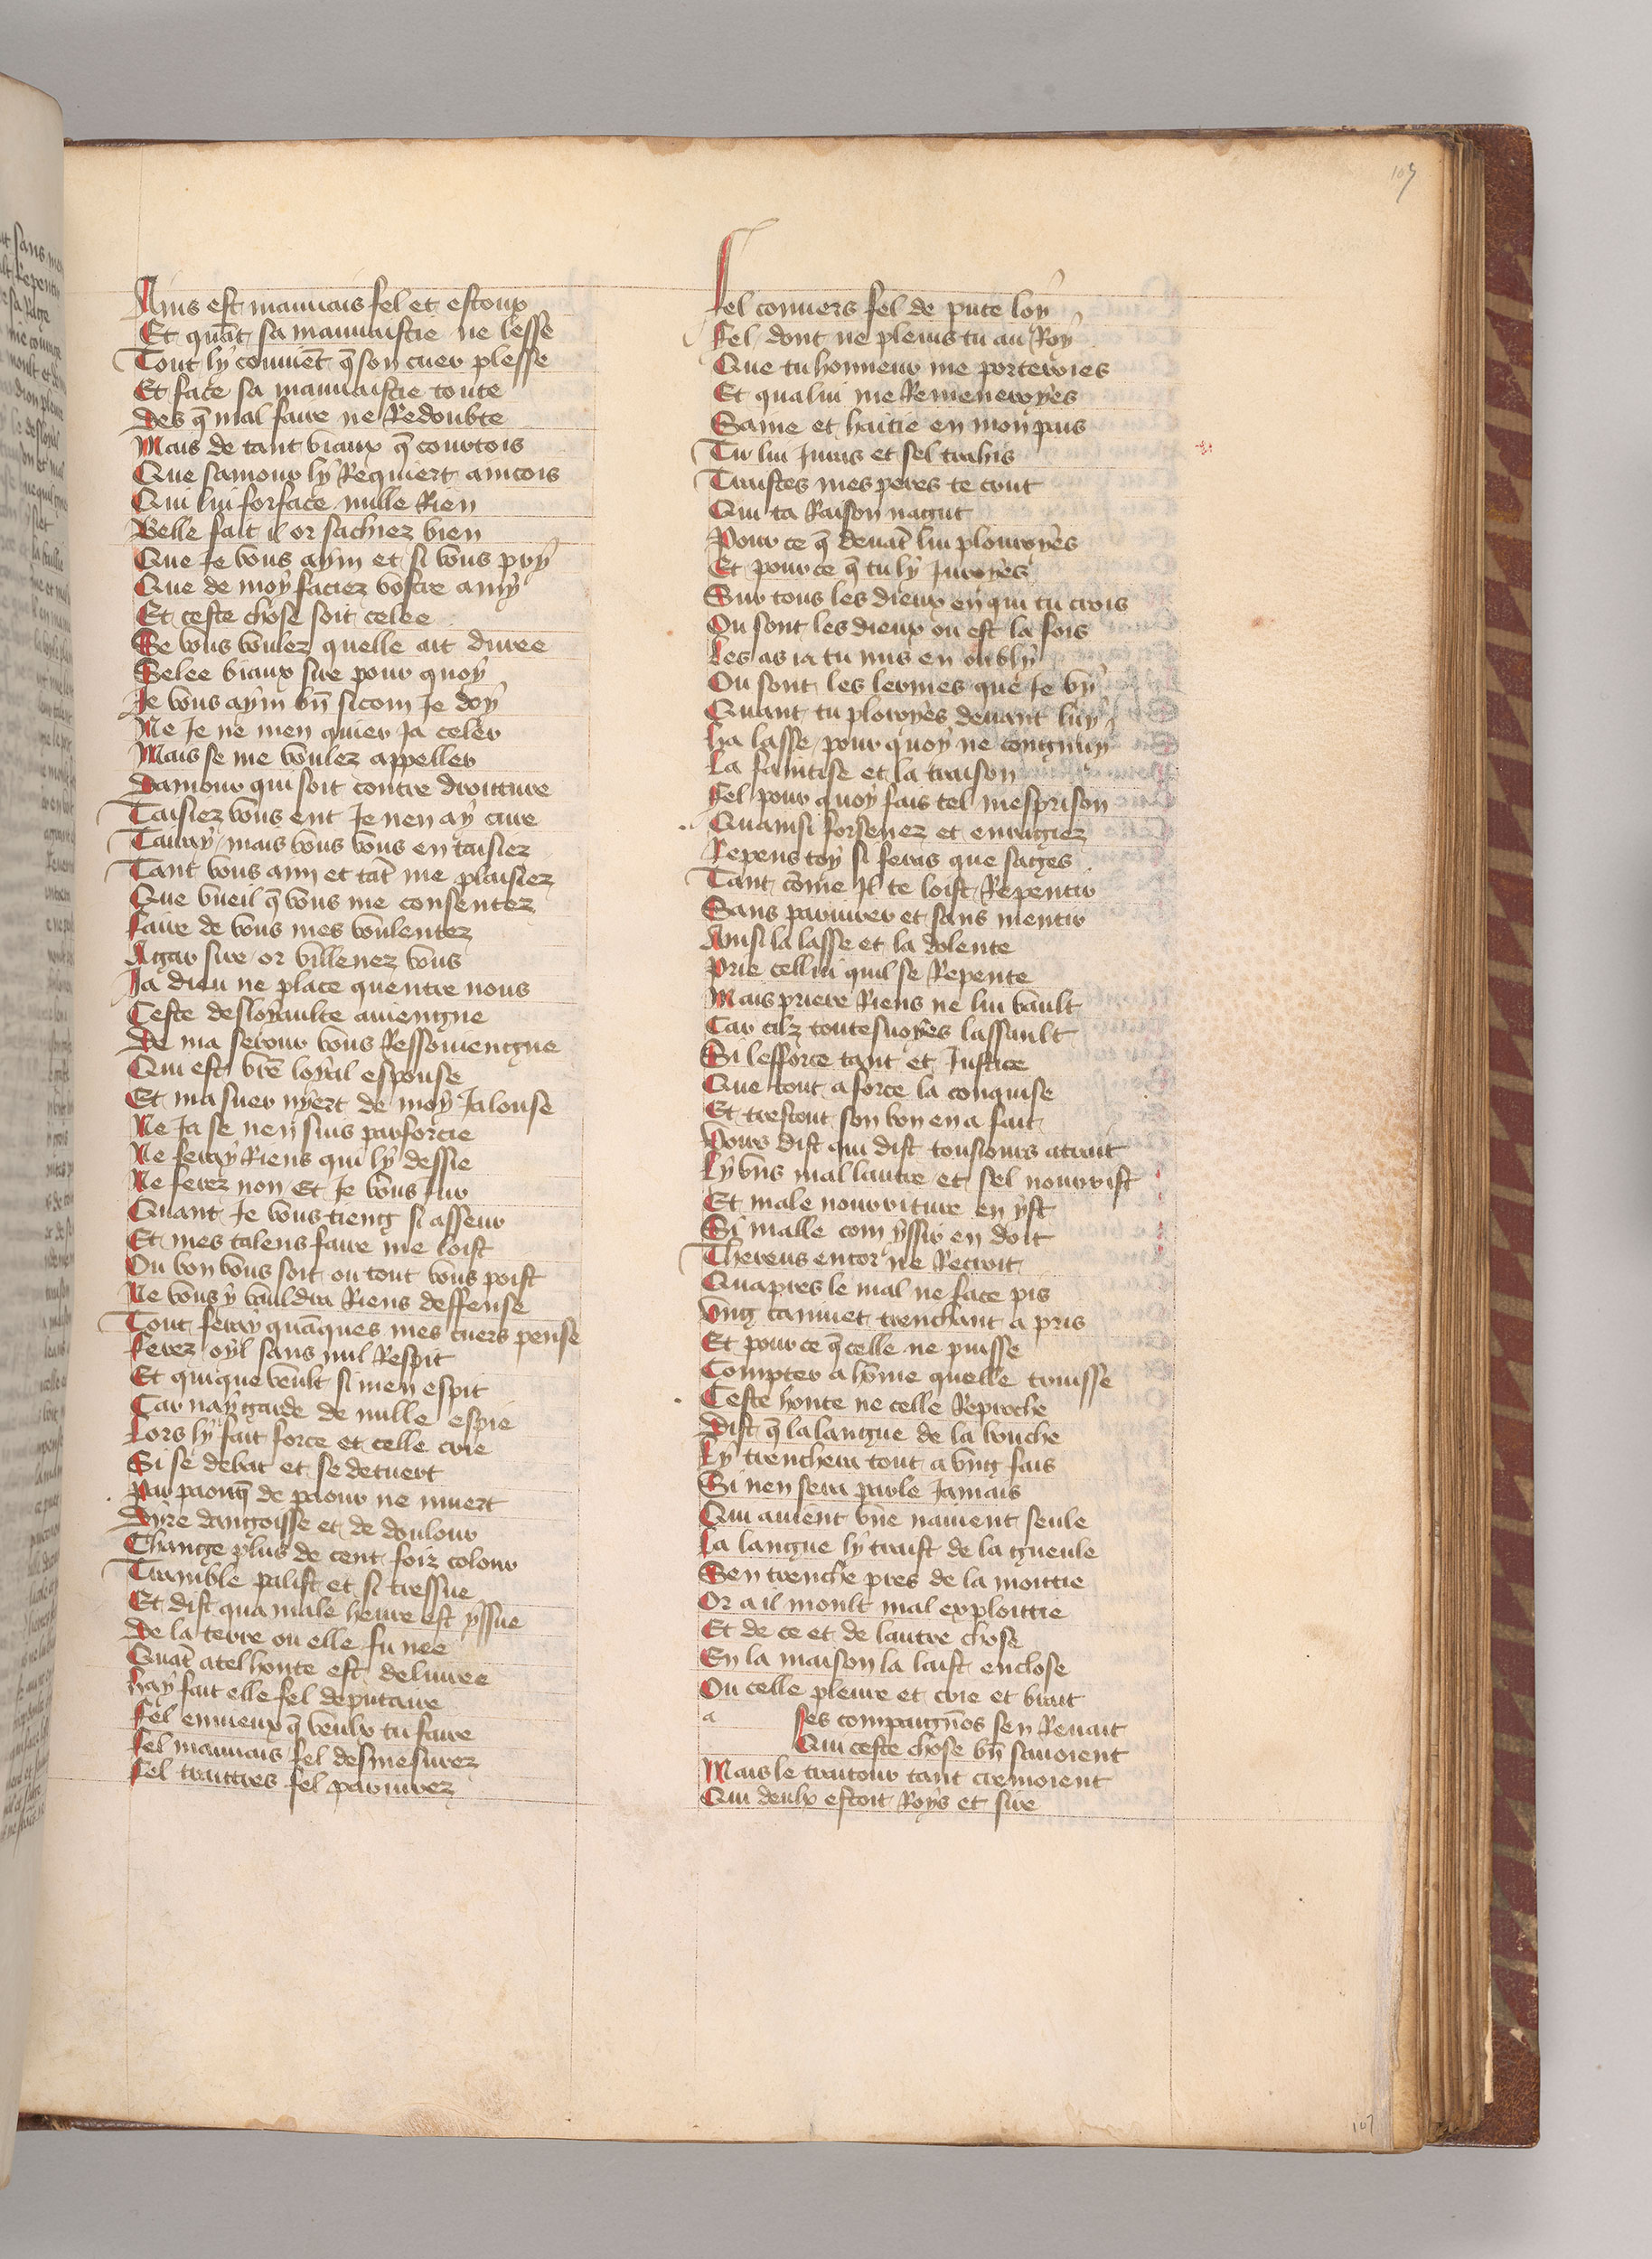 107
Ains est mauuais fel et estoux
Et quãt sa mauuaistie ne lesse
Tout ly couuiẽt q̃ son cuer plesse
Et face sa mauuaistie toute
Des q̃ mal faire ne Redoubte
Mais de tant viaux q̃ courtois
Que samour ly Requiert aincois
Qui lui forface nulle Rien
Belle fait il or sachiez bien
Que Je vous aym et si vous pry
Que de moy faciez vostre amy
Et ceste chose soit celee
Se vous voulez quelle ait duree
Selee biaux sire pour quoy
Je vous aym bñ sicom Je doy
Ne Je ne men quier Ja celer
Mais se me voulez appeller
Damour qui soit contre droitture
Taisiez vous ent Je nen ay cure
Tairay mais vous vous en taisiez
Tant vous aim et tãt me plaisiez
Que vueil q̃ vous me consentez
Faire de vous mes voulentez
Agar sire or villenez vous
Ja dieu ne place quentre nous
Ceste desloyaulte auiengne
De ma serour vous Ressouuiengne
Qui est vrẽ loyal espouse
Et ma suer nyert de moy Jalouse
Ne Ja se nen suis parforcie
Ne feray Riens qui ly dessie
Ne ferez non Et Je vous Jur
Quant Je vous tieng si asseur
Et mes talens faire me loist
Ou bon vous soit ou tout vous poist
Ne vous y vauldra Riens deffense
Tout feray quãques mes cuers pense
Ferez oyl sans nul Respit
Et quique veult si men espit
Car nay garde de nulle espie
Lors ly fait force et celle crie
Si se debat et se detuert
Par paorq̃ de paour ne muert
Dyre dangoisse et de doulour
Change plus de cent foiz colour
Tramble palist et si tressue
Et dist qua male heure est yssue
De la terre ou elle fu nee
Quãt atel honte est deliuree
Hay fait elle fel deputaire
Fel enuieux q̃ veulx tu faire
Fel mauuais fel desmesurez
Fel traittres fel pariurez
Fel conuers fel de pute loy
Fel dont ne pleuis tu au Roy
Que tu honneur me porteroies
Et qualui me Remenroyes
Saine et haitie en mon pais
Tu lui Juras et sel trahis
Traistes mes peres te crut
Qui ta Raison nagut
Pour ce q̃ deuãt lui plouroyes
Et pour ce q̃ tu ly Juroyes
Sur tous les dieux en qui tu crois
Ou sont les dieux ou est la fois
Les as ia tu mis en oubly
Ou sont les lermes que Je vy
Quant tu ploroyes deuant luy
Ha lasse pour quoy ne congnuy
La faintise et la traison
Fel pour quoy fais tel mesprison
Quainsi forsenez et enragiez
Repens toy si feras que sages
Tant cõme Jl te loist Repentir
Sans pariurer et sans mentir
Ainsi la lasse et la dolente
Prie cellui quil se Repente
Mais priere Riens ne lui vault
Car cilz toutesuoyes lassault
Si lefforce tant et Justice
Que tout a force la conquise
Et trestout son bon en a fait
Voirs dist qui dist tousiours atrait
Ly vns mal lautre et sel nourrist
Et male nourriture en yst
Si malle com yssir en doit
Thereus encor ne Recroit
Quapres le mal ne face pis
Vng canuet trenchant a pris
Et pour ce q̃ celle ne puisse
Compter a hõme quelle truisse
Ceste honte ne celle Reproche
Dist q̃ la langue de la bouche
Ly trenchera tout a vng fais
Si nen sera parle Jamais
Qui auient vne nauient seule
La langue ly traist de la gueule
Sen trenche pres de la moittie
Or a il moult mal exploittie
Et de ce et de lautre chose
En la maison la laist enclose
Ou celle pleure et crie et brait
a Ses compaignõs sen Reuait
Qui ceste chose bñ sauoient
Mais le traitour tant cremoient
Qui deulx estoit Roys et sire
107